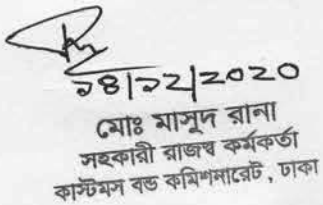 ২৪|১২|2020
মোঃ মাসুদ রানা
সহকারী রাজস্ব কর্মকর্তা
কাস্টমস বন্ড কমিশনারেট, ঢাকা